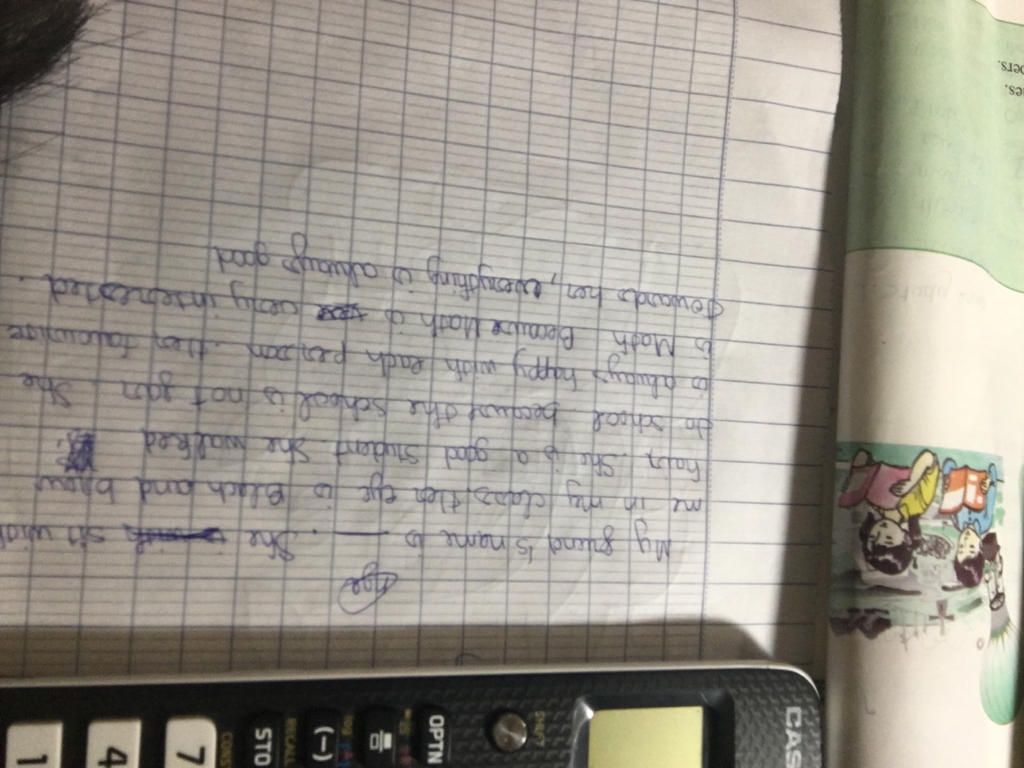 Age
My friend's name is ___. She sit with
me in my class. Her eye is Black and brow
hair. She is a good student she walked
to school because the school is not gar. She
is always happy with each person. Her favourite
is Math Because Math is very interested.
Towards her, everything is always good
CAS
OPTN
(−)
STO
RECALL
7
4
1
SHIFT
bers.
es.